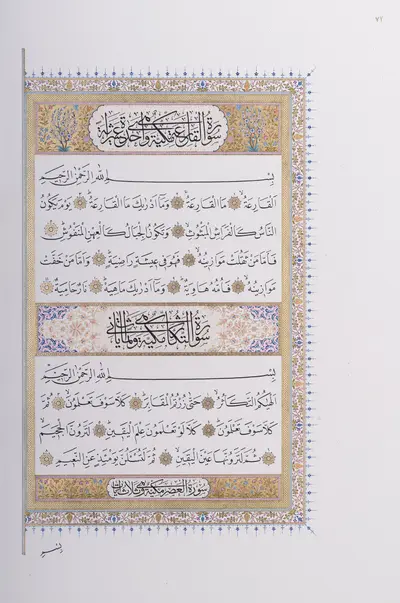 ٧٢
سورة القارعة مكية وهي احدى عشرة آية
بسم الله الرحمن الرحيم
اَلْقَارِعَةُ ۝ مَا الْقَارِعَةُ ۝ وَمَا اَدْرٰيكَ مَا الْقَارِعَةُ ۝ يَوْمَ يَكُونُ
النَّاسُ كَالْفَرَاشِ الْمَبْثُوثِ ۝ وَتَكُونُ الْجِبَالُ كَالْعِهْنِ الْمَنْفُوشِ
فَاَمَّا مَنْ ثَقُلَتْ مَوَازِينُهُ ۝ فَهُوَ فِى عِيشَةٍ رَاضِيَةٍ ۝ وَاَمَّا مَنْ خَفَّتْ
مَوَازِينُهُ ۝ فَاُمُّهُ هَاوِيَةٌ ۝ وَمَا اَدْرٰيكَ مَاهِيَهْ ۝ نَارٌ حَامِيَةٌ ۝
سورة التكاثر مكية وهي ثمان آيات
بسم الله الرحمن الرحيم
اَلْهٰيكُمُ التَّكَاثُرُ ۝ حَتّٰى زُرْتُمُ الْمَقَابِرَ ۝ كَلَّا سَوْفَ تَعْلَمُونَ ۝ ثُمَّ
كَلَّا سَوْفَ تَعْلَمُونَ ۝ كَلَّا لَوْ تَعْلَمُونَ عِلْمَ الْيَقِينِ ۝ لَتَرَوُنَّ الْجَحِيمَ
۝ ثُمَّ لَتَرَوُنَّهَا عَيْنَ الْيَقِينِ ۝ ثُمَّ لَتُسْئَلُنَّ يَوْمَئِذٍ عَنِ النَّعِيمِ
سورة العصر مكية وهي ثلاث آيات
بسم